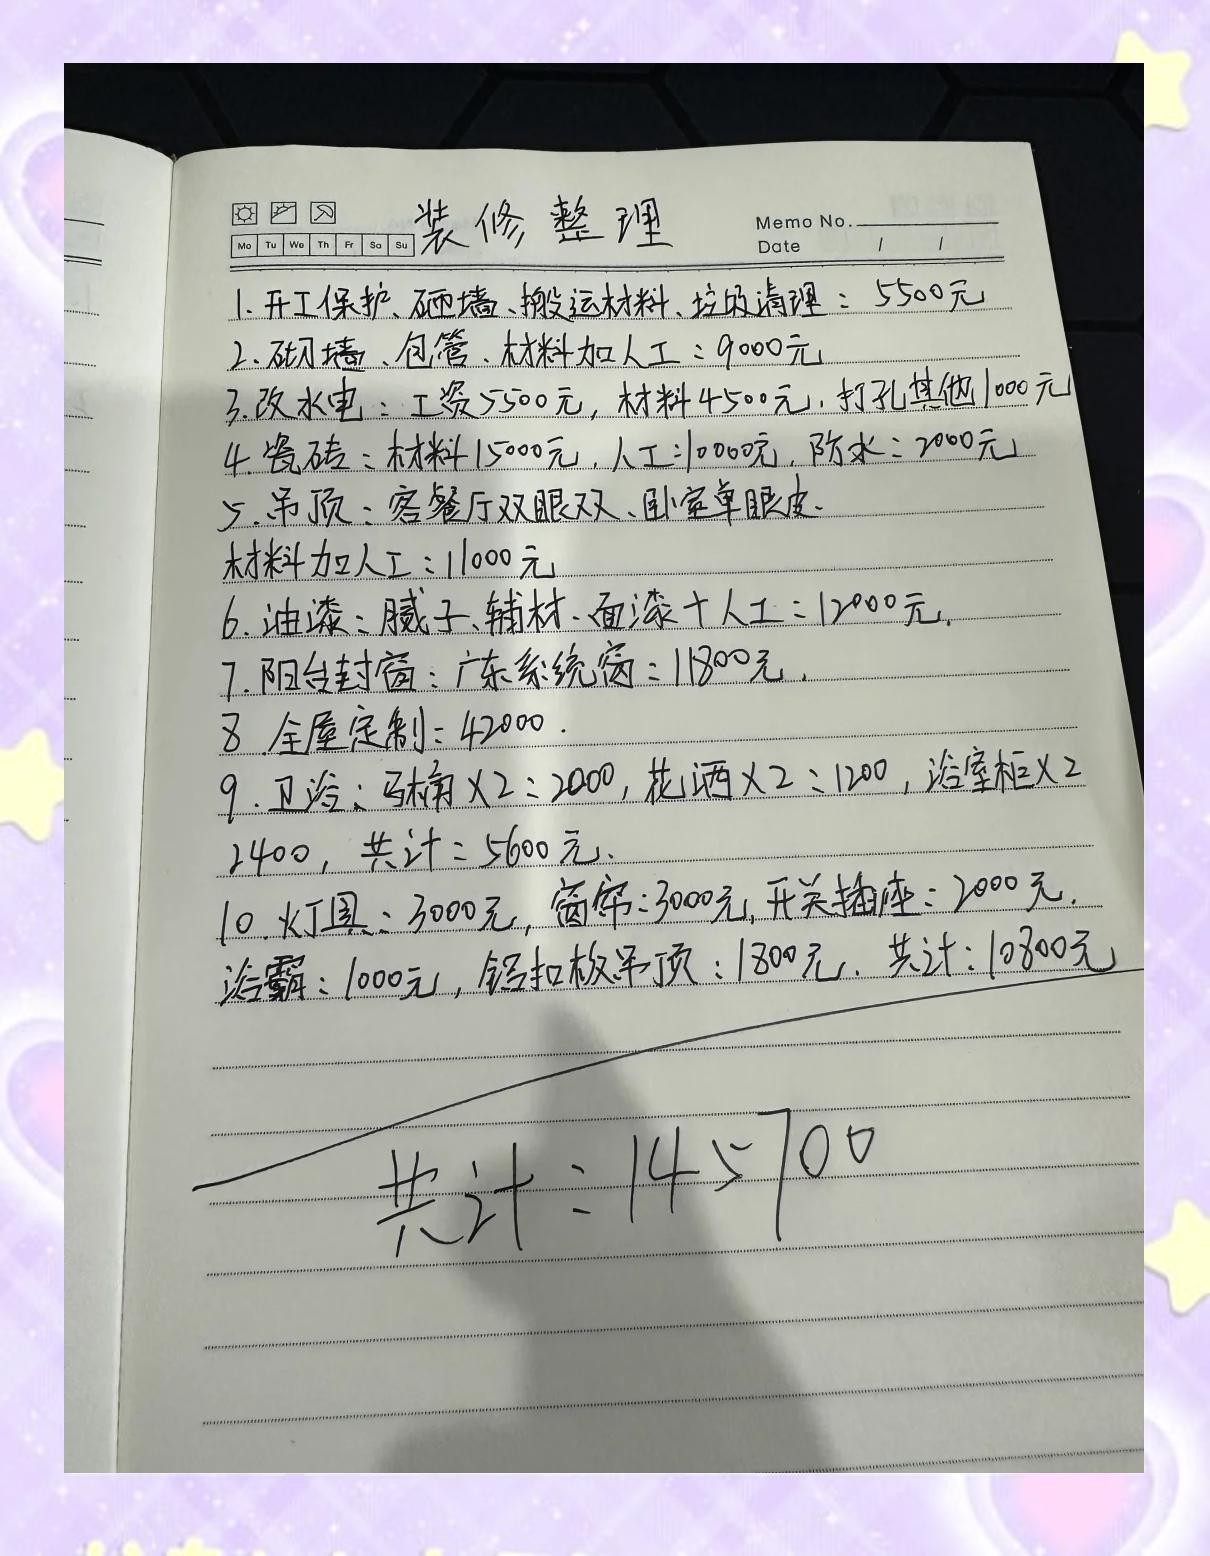 装修整理
Memo No.
Mo Tu We Th Fr Sa Su
Date / /
1.开工保护、砸墙、搬运材料、垃圾清理：5500元
2.砌墙、包管、材料加人工：9000元
3.改水电：工资5500元，材料4500元，打孔其他1000元
4.瓷砖：材料15000元，人工：10000元，防水：2000元
5.吊顶：客餐厅双眼双、卧室单眼皮.
材料加人工：11000元
6.油漆：腻子、辅材、面漆+人工：12000元.
7.阳台封窗：广东系统窗：11800元.
8.全屋定制：42000.
9.卫浴：马桶×2：2000，花洒×2：1200，浴室柜×2
2400，共计：5600元.
10.灯具：3000元，窗帘：3000元，开关插座：2000元.
浴霸：1000元，铝扣板吊顶：1800元.共计：10800元
共计：145700